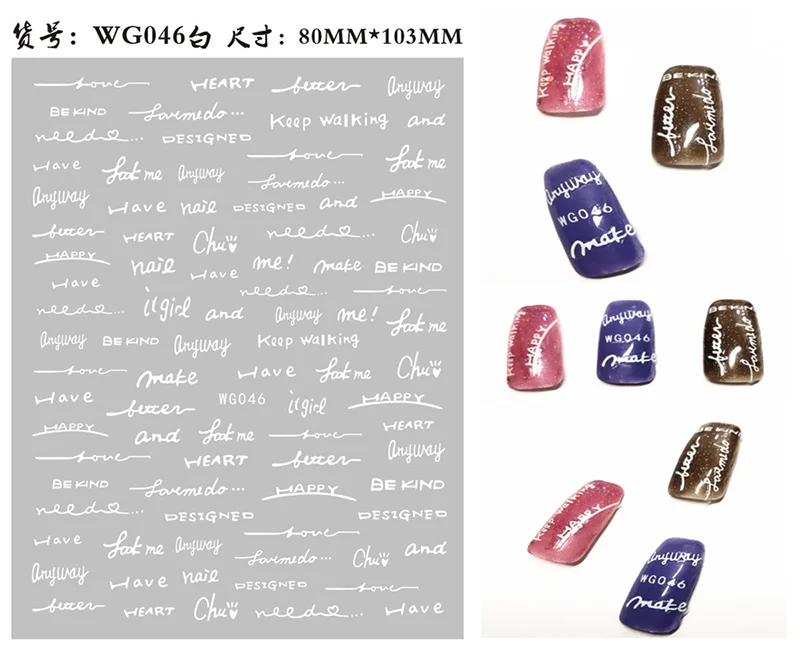 货号：WG046白 尺寸：80MM*103MM
Love HEART better Anyway
BE KIND Lovimedo... Keep walking and
need... DESIGNED Love Look me
Have Look me Anyway Lovimedo...
Anyway Have nail DESIGNED and HAPPY
better HEART Chu need... Chu
HAPPY nail Have me! make BE KIND
Have need... Love
need... itgirl and Anyway me! Look me
Anyway BE KIND Anyway Keep walking
Love make Have Look me Chu
Have better WG046 itgirl HAPPY
HAPPY and Look me Love HEART
Love HEART better Anyway
BE KIND Lovimedo... HAPPY BE KIND
need... DESIGNED DESIGNED
Have Look me Anyway Love and
Lovimedo... Chu
Anyway Have nail DESIGNED Love
better HEART Chu need... Have
Keep walking
HAPPY
BE KIND
better
Lovimedo
Anyway
WG046
make
Keep walking
HAPPY
Anyway
WG046
make
BE KIND
better
Lovimedo
Keep walking
HAPPY
BE KIND
better
Lovimedo
Anyway
WG046
make